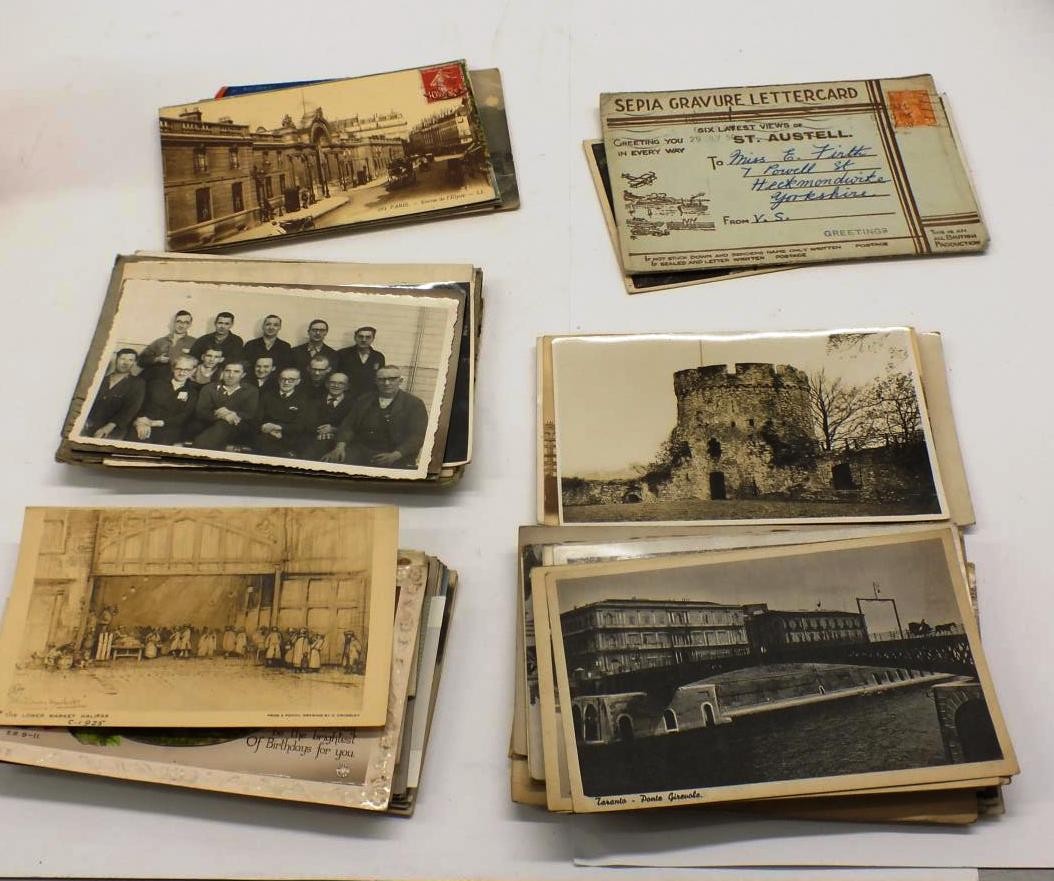 10c
184 PARIS. - Avenue de l'Elysée - LL.
SEPIA GRAVURE LETTERCARD
SIX LATEST VIEWS OF
GREETING YOU
ST. AUSTELL.
IN EVERY WAY
To Miss E. Firth
7 Powell St
Heckmondwike
Yorkshire
FROM V. S.
GREETINGS
THIS IS AN
ALL BRITISH
PRODUCTION
IF NOT STUCK DOWN AND SENDERS NAME ONLY WRITTEN POSTAGE
IF SEALED AND LETTER WRITTEN POSTAGE
THE LOWER MARKET HALIFAX
FROM A PENCIL DRAWING BY
C-1925
E.R 9-11
be the brightest
Of Birthdays for you.
Taranto - Ponte Girevole.